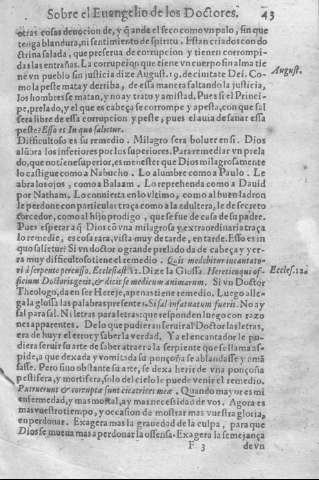 Sobre el Euangelio de los Doctores. 43
otras cosas deuocion de, y quando el seco como vn palo, sin que
tenga blandura, ni sentimiento de spiritu. Estan criados con do
ctrina salada, que preserua de corrupcion y tienen corrompi-
das las entrañas. La corrupciõ que tiene vn cuerpo sin alma tie
ne vn pueblo sin justicia dize August. 19. de ciuitate Dei. Co-
August.
mo la peste mata y derriba, de essa manera faltando la justicia,
los hombres se matan, y no ay trato y amistad. Pues si el Princi-
pe, prelado, y el que es cabeça se corrompe y apesta, con que sal
sera libre de essa corrupcion y peste, pues el auia de sanar essa
peste? Esso es In quo salietur.
Dificultoso es su remedio. Milagro sera boluer en si. Dios
alũbra los inferiores por los superiores. Para remediar vn prela
do, que no tiene superior, es menester que Dios milagrosamente
lo castigue como a Nabucho. Lo alumbre como a Paulo. Le
abra los ojos, como a Balaam. Lo reprehenda como a Dauid
por Natham. Lo conuierta en lo vltimo, como al buen ladron
le perdone con particular traça como a la adultera, le de secreto
corredor, como al hijo prodigo, que se fue de casa de su padre.
Pues esperar a q̃ Dios cõ vna milagrosa y extraordinaria traça
lo remedie, es cosa rara, vista muy de tarde, en tarde. Esso es in
quo salietur? Si vn doctor o grande prelado da de cabeça y yer-
ra muy dificultoso tiene el remedio. Quis medebitur incantato-
ri à serpente percusso. Ecclesiast. 12. Dize la Glossa. Heretico qui of-
Ecclesi. 12.
ficium Doctoris gerit, &c. dicit se medicum animarum. Si vn Doctor
Theologo, da en ser Hereje, apenas tiene remedio. Luego alle-
ga la glossa las palabras presentes. Si sal infatuatum fuerit. No ay
sal para sal. Ni letras para letras: que responden luego con razo
nes aparentes. De lo que pudieran seruir al Doctor las letras,
era de huyr el error y saber la verdad. Y a el encantador le pu-
diera seruir su arte de saber atraer a la serpiente que se llama as-
pide, a que dexada y vomitada su ponçoña se ablandasse y amã
sasse. Pero si no obstante su arte, se dexa herir de vna ponçoña
pestifera, y mortifera, solo del cielo le puede venir el remedio.
Putruerunt & corruptæ sunt cicatrices meæ. Quando mayor es mi
enfermedad, y mas mortal, ay mas necesidad de vos. Agora es
mas vuestro tiempo, y occasion de mostrar mas vuestra gloria,
en perdonar. Exagera mas la grauedad de la culpa, para que
Dios se mueua mas a perdonar la offensa. Exagera la semejança
F 3 de vn